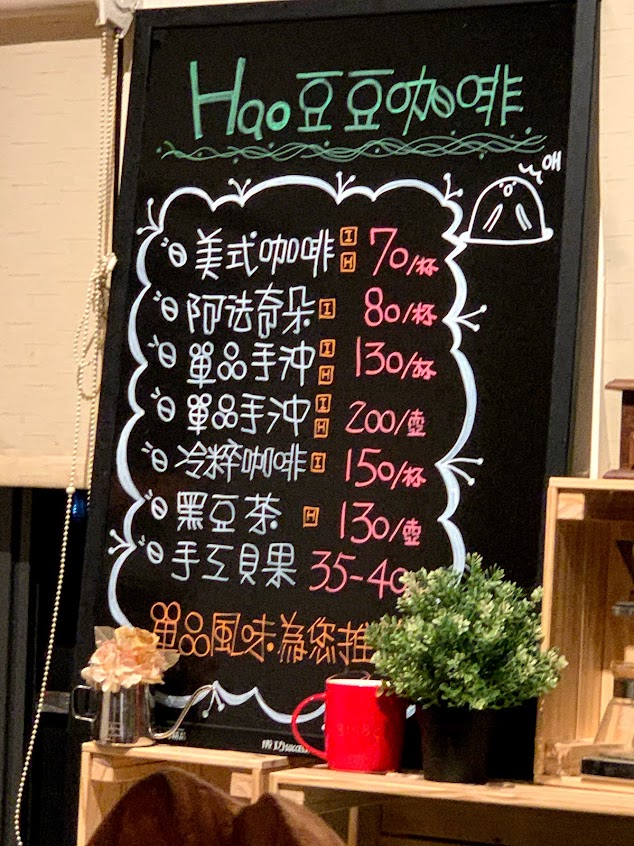 Hao豆豆咖啡
애
美式咖啡 I H 70/杯
阿法奇朵 I 80/杯
單品手沖 I H 130/杯
單品手沖 I H 200/壺
冷粹咖啡 I 150/杯
黑豆茶 H 130/壺
手工貝果 35-40
單品風味為您推